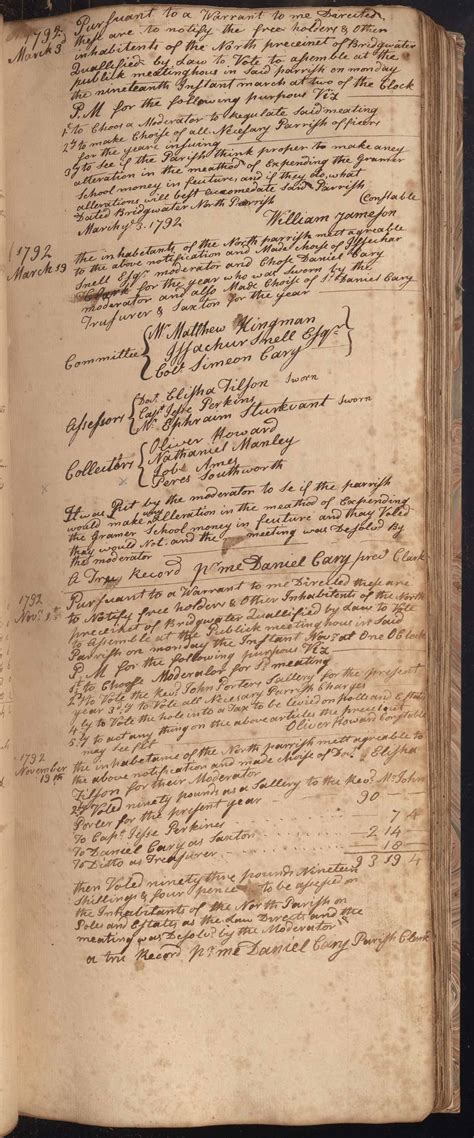 1792
March 3d
Pursuant to a Warrant to me Directed
these are to notify the free holders & Other
inhabitents of the North precinct of Bridgwater
Quallified by Law to Vote to asemble at the
publick meatinghous in Said parrish on monday
the nineteenth Instant march at two of the Clock
P.M for the following purpous Viz
1ly to Choos a Moderator to Regulate Said meating
2ly to make Choise of all Necesary Parrish oficers
for the yeare insuing
3ly to See if the Parrish think proper to make aney
alteration in the meathod of Expending the Gramer
School money in feuture, and if they do, what
alterations will best accomedate Said Parrish
Dated Bridgwater North Parrish
March ye 3. 1792
Constable
William Jameson
1792
March 19
the inhabitants of the North parrish mett agreable
to the above notification and Made Choise of Issachar
Snell Esqr moderator and Chose Daniel Cary
Clark for the year who was Sworn by the
moderator and also Made Choise of Sd Daniel Cary
Tresurer & Saxton for the year
Committee
Mr Matthew Kingman
Issachur Snell Esqr
Colt Simeon Cary
Assessors
Doct Elisha Tilson Sworn
Capt Jesse Perkins
Mr Ephraim Sturtevant Sworn
Collectors
Oliver Howard
Nathaniel Manley
Job Ames
Peres Southworth
It was Put by the moderator to Se if the parrish
would make any alteration in the meathod of Expending
the Gramer School money in feuture and thay Voted
thay would Not. and the meeting was Desolvd By
the moderator
A Trey Record pr me Daniel Cary prect Clark
1792
Novr 1st
Pursuant to a Warrant to me Directed these are
to Notify free holders & Other Inhabitents of the North
precinket of Bridgwater Quallified by Law to Vote
to Asemble at the Publick meetinghous in Said
Parrish on monday the Instant Novr at One O Clock
P. M for the following purpous Viz
1ly to Choose Moderator for Sd meating
2ly to Vote the Revd John Porters Sallery for the present
year 3ly to Vote all Necesary Parrish Charges
4ly to Vote the hole into a Tax to be levied on Poll and Estate
5ly to act any thing on the above articles the precinct
may See fitt
Oliver Howard Constable
1792
November
19th
the inhabetance of the North parrish mett agreable to
the above notification and made Choise of Doct Elisha
Tilson for their Moderator
2ly Voted ninety pounds as a Sallery to the Revd Mr John
Porter for the present year 90
To Capt Jesse Perkines 7 4
To Daniel Cary as Saxton 2 14
To Ditto as Tresurer 18
93 19 4
then Voted ninety three pounds Nineteen
Shillings & four pence to be asessed on
the Inhabitants of the North Parish on
Pole and Estates as the Law Directs and the
meating was Desolvd by the Moderator
a tru Record pr me Daniel Cary Parish Clark